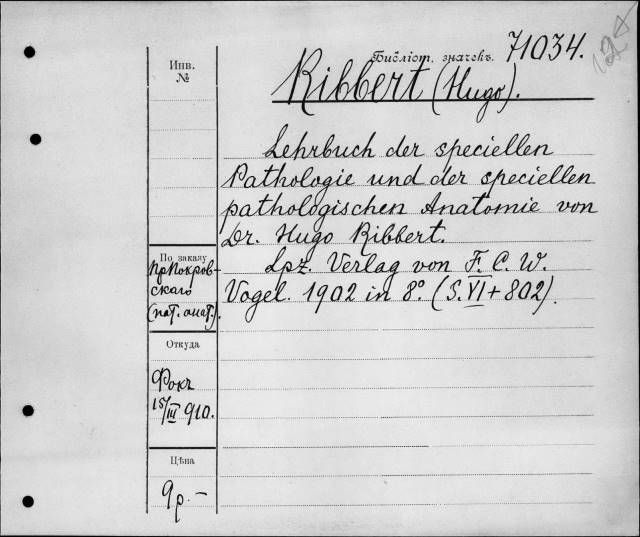 Инв.
№
Библіот. значекъ. 71034.
Ribbert (Hugo).
Lehrbuch der speciellen
Pathologie und der speciellen
pathologischen Anatomie von
Dr. Hugo Ribbert.
Lpz. Verlag von F. C. W.
Vogel. 1902 in 8º. (S. VI + 802).
По заказу
Пр Покров-
скаго
(пат. анат.).
Откуда
Фокъ
15/III 910.
Цѣна
9 р. –